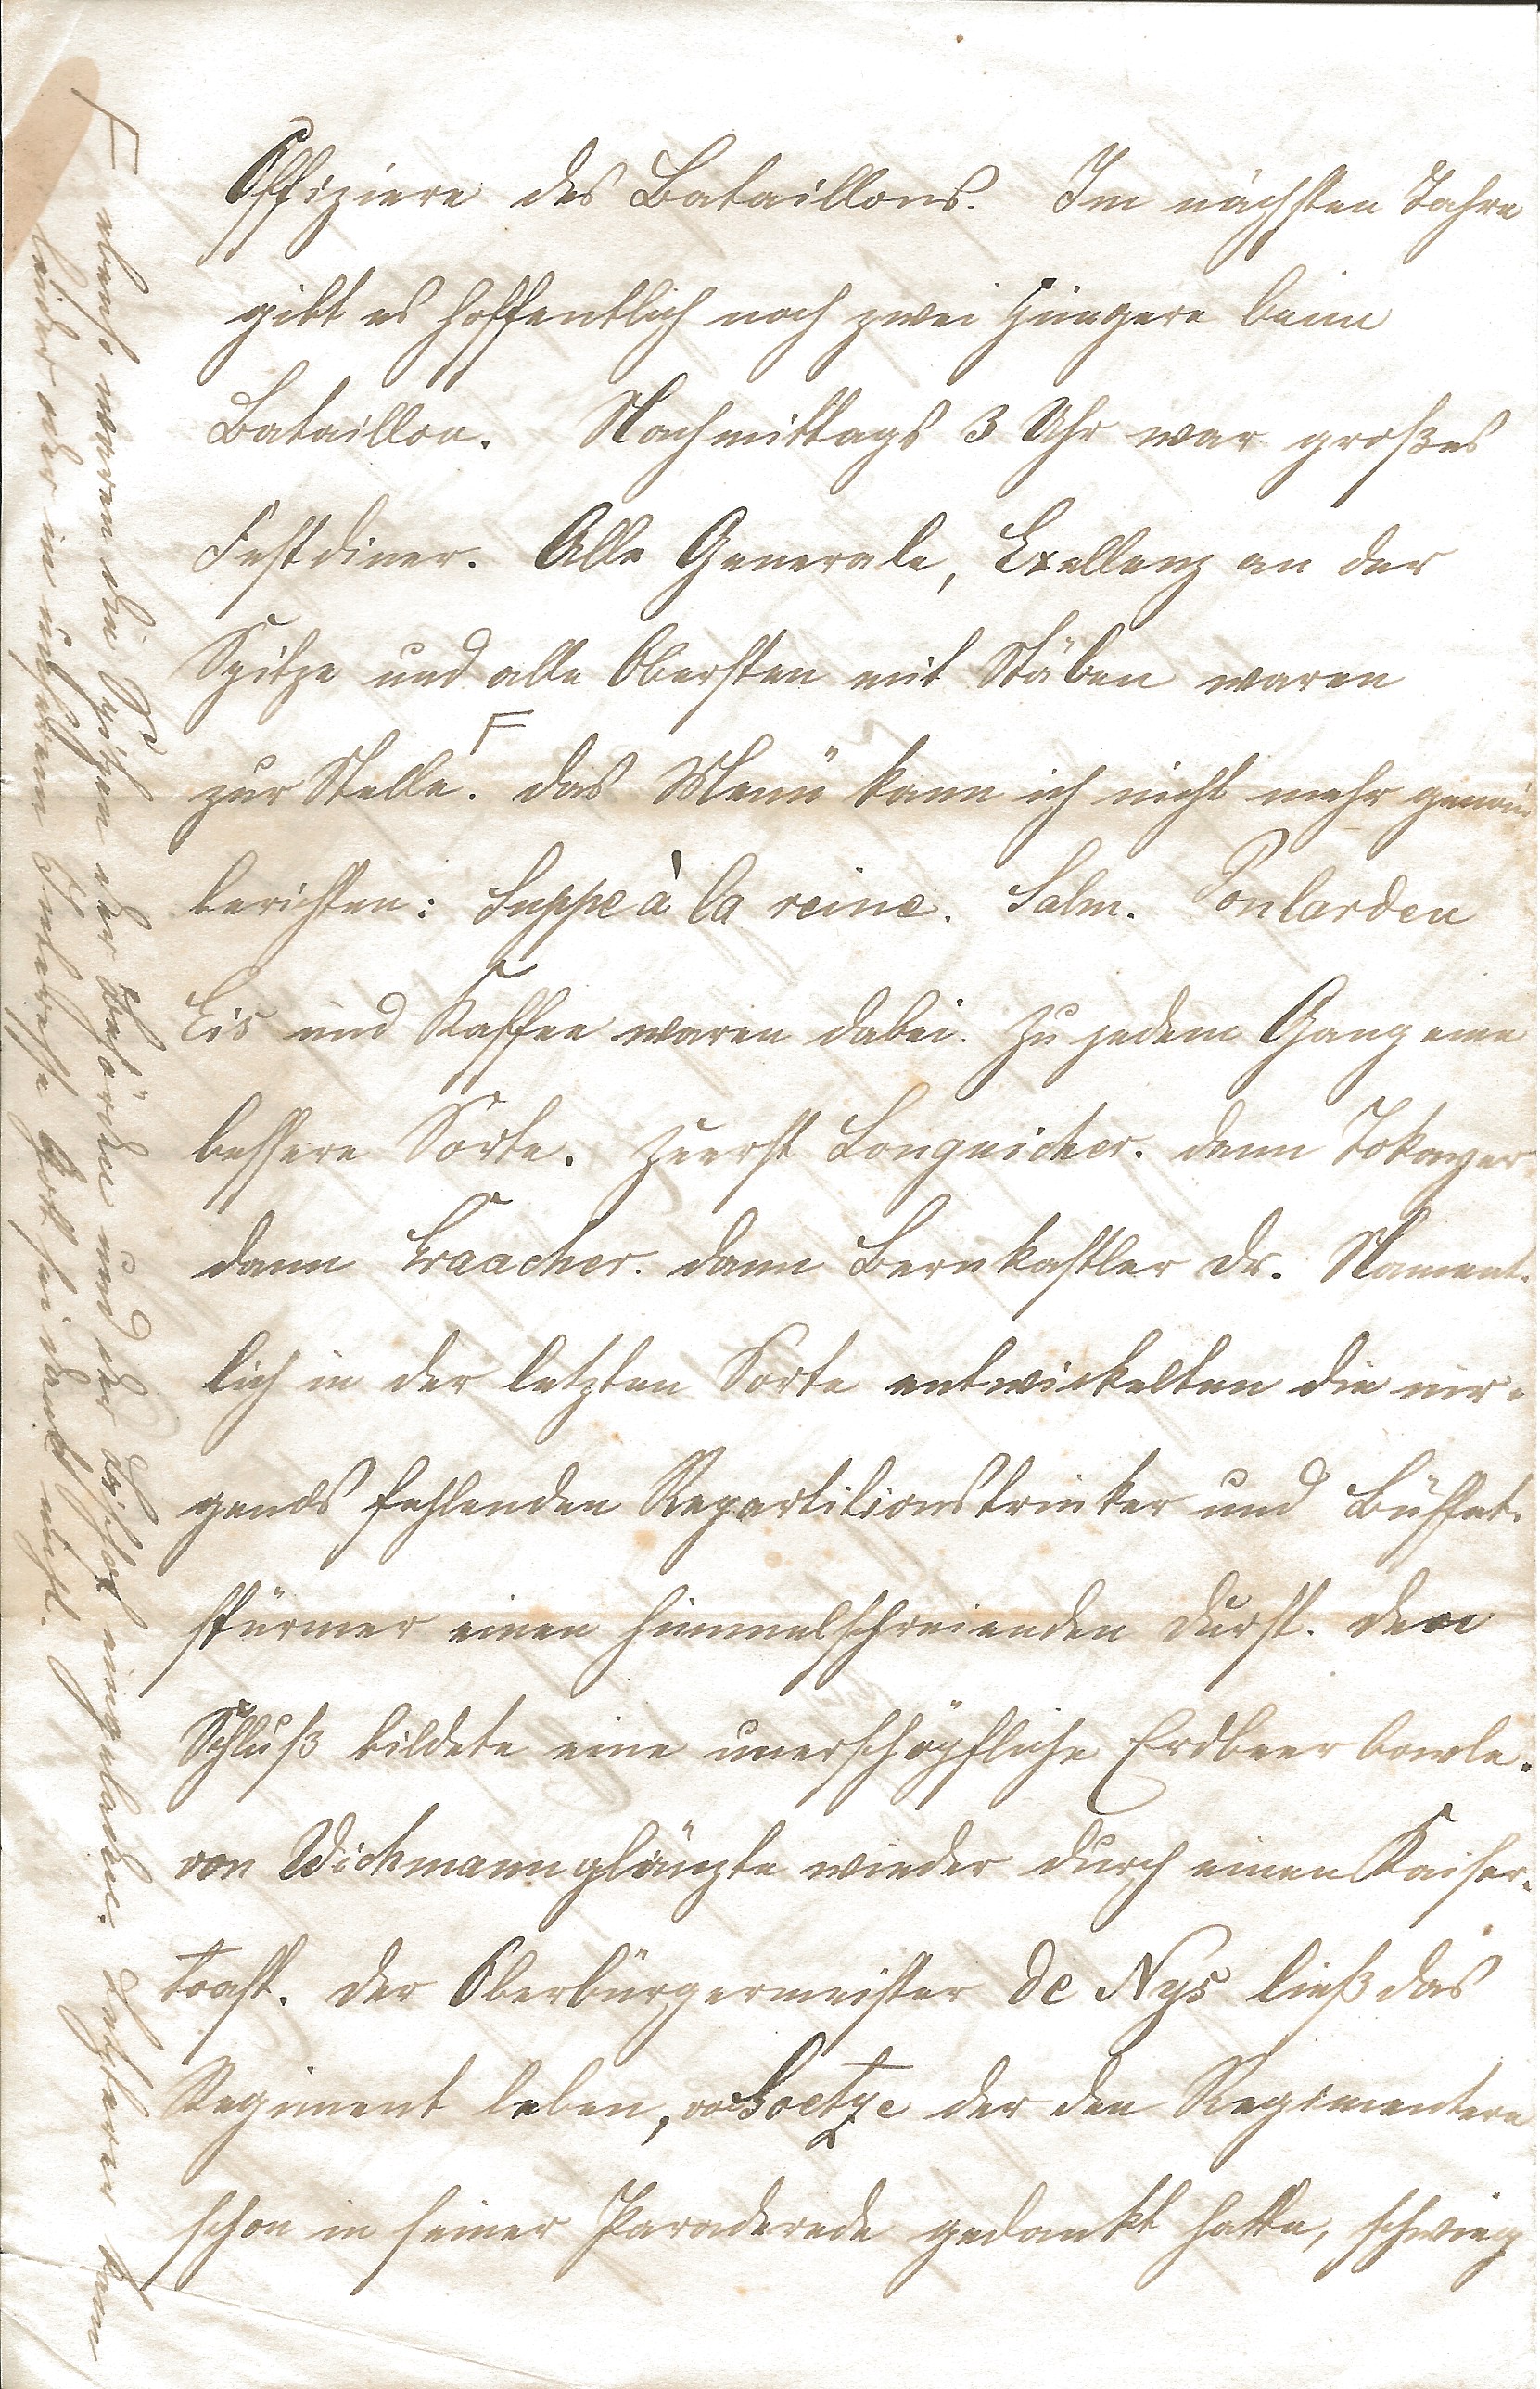 Offiziere des Bataillons. Im nächsten Jahre
gibt es hoffentlich noch zwei Jüngere beim
Bataillon. Nachmittags 3 Uhr war großes
Festdiner. Alle Generale, Exellenz an der
Spitze und alle Obersten mit Stäben waren
zur Stelle. Das Menü kann ich nicht mehr genau
berichten: Suppe à la reine. Salm. Poularden
Eis und Kaffee waren dabei. Zu jedem Gang eine
bessere Sorte. Zuerst Longuicher. dann Tokayer
dann Graacher. dann Bernkastler Dr. Nament-
lich in der letzten Sorte entwickelten die nir-
gends fehlenden Repartitionstrinker und Büffet-
stürmer einen himmelschreienden Durst. Den
Schluß bildete eine unerschöpfliche Erdbeerbowle.
von Wichmann glänzte wieder durch einen Kaiser-
toast. Der Oberbürgermeister de Nys ließ das
Regiment leben, Goetze der den Regimentern
schon in seiner Paraderede gedankt hatte, schwieg
ebenso waren die Spitzen der Behörden und der Bischof eingeladen. Letzterer kam
leider oder in unserem Interesse Gott sei Dank nicht.